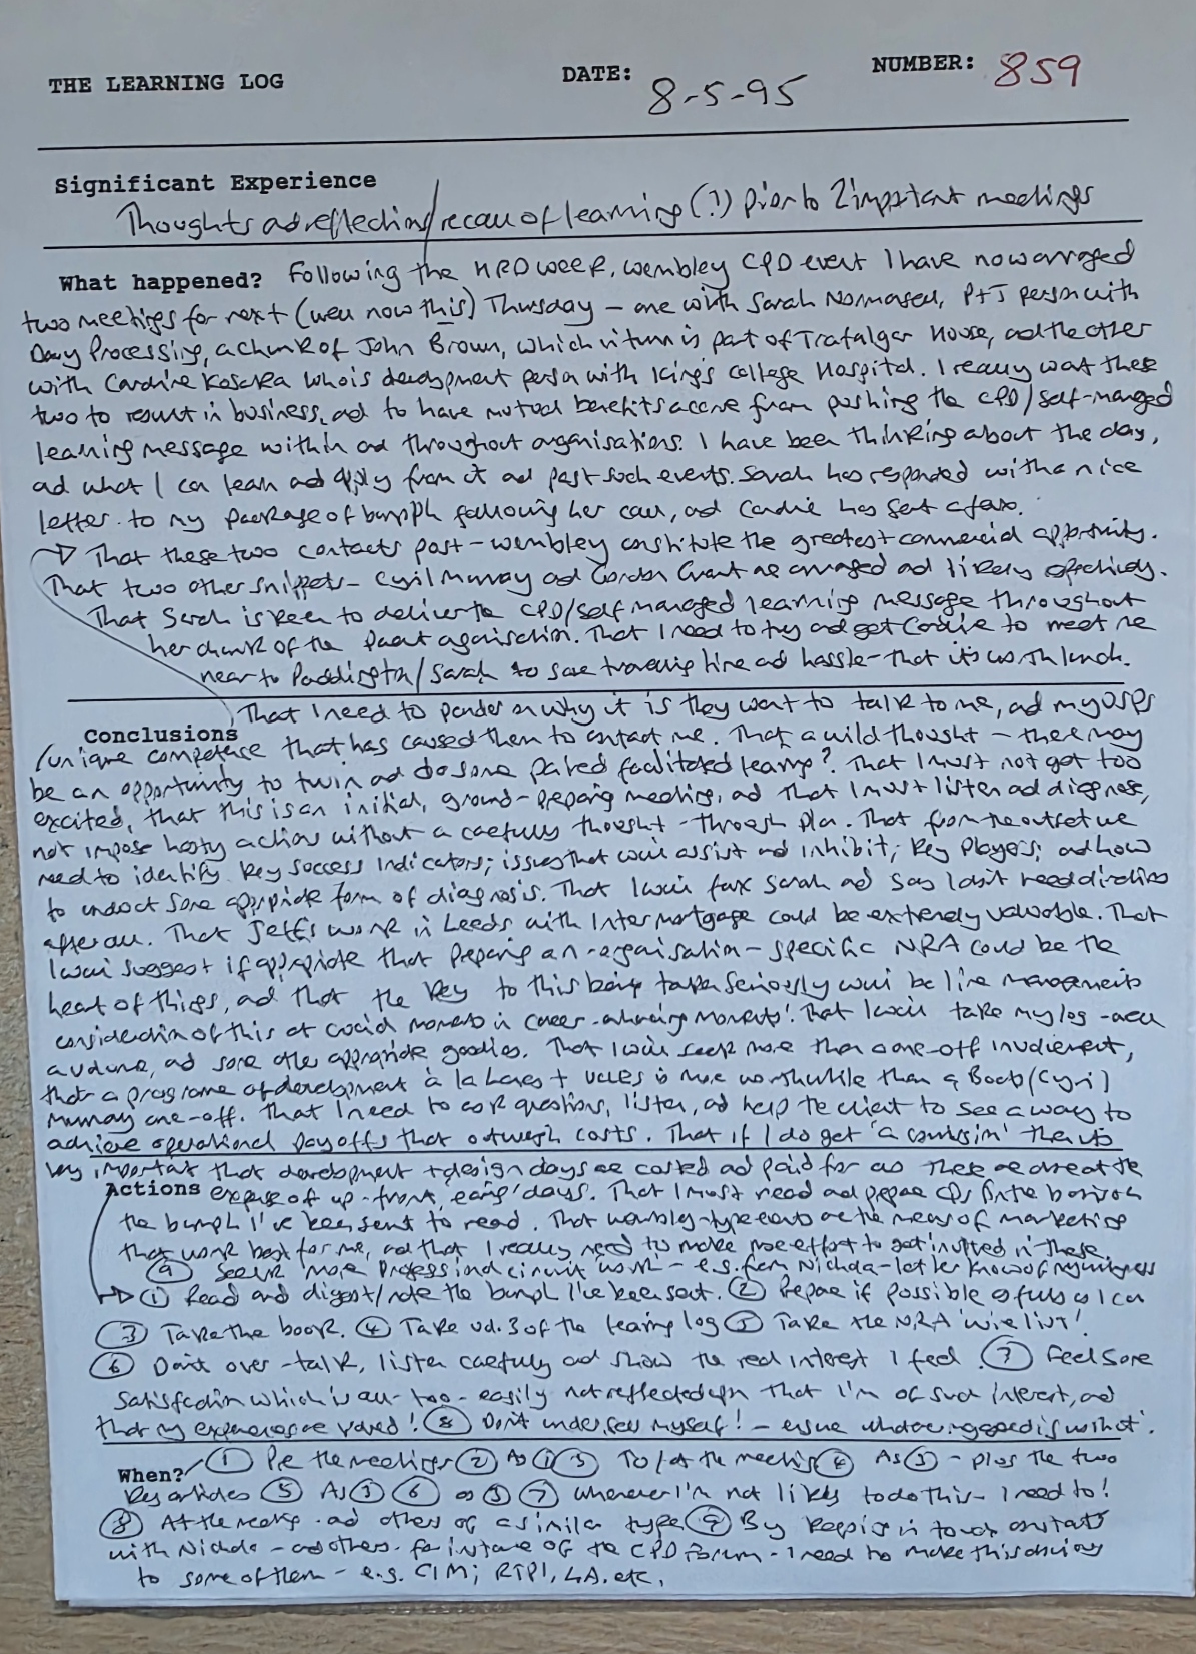 THE LEARNING LOG DATE: 8-5-95 NUMBER: 859
Significant Experience
Thoughts and reflection/recall of learning (?) prior to 2 important meetings
What happened? Following the HRD WEEK, Wembley CPD event I have now arranged
two meetings for next (well now this) Thursday – one with Sarah, P+T person with
Davy Processing, a chunk of John Brown, which in turn is part of Trafalgar House, and the other
with Caroline who is development person with Kings College Hospital. I really want these
two to result in business, and to have mutual benefits accrue from pushing the CPD/self-managed
learning message within and throughout organisations. I have been thinking about the day,
and what I can learn and apply from it and past such events. Sarah has responded with a nice
letter to my package of bumph following her call, and Caroline has sent a fax.
→ That these two contacts post-Wembley constitute the greatest commercial opportunity.
That two other snippets – Cyril Murray and Gordon Grant are arranged and likely
That Sarah is keen to deliver the CPD/self managed learning message throughout
her chunk of the parent organisation. That I need to try and get Caroline to meet me
near to Paddington/Sarah to save travelling time and hassle – that it's worth lunch.
That I need to ponder on why it is they want to talk to me, and my USPs
Conclusions
/unique competence that has caused them to contact me. That a wild thought – there may
be an opportunity to twin and do some paired facilitated learning? That I must not get too
excited, that this is an initial, ground-preparing meeting, and that I must listen and diagnose,
not impose hasty actions without a carefully thought-through plan. That from the outset we
need to identify key success indicators; issues that will assist and inhibit; key players; and how
to conduct some appropriate form of diagnosis. That I will fax Sarah and say I don't need directions
after all. That Jeff's work in Leeds with Intermortgage could be extremely valuable. That
I will suggest if appropriate that preparing an organisation-specific NRA could be the
heart of things, and that the key to this being taken seriously will be line managements
consideration of this at crucial moments in career-enhancing moments'. That I will take my log – all
volume, and some other appropriate goodies. That I will seek more than a one-off involvement,
that a programme of development à la + is more worthwhile than a Boots/Cyril
Murray one-off. That I need to ask questions, listen, and help the client to see a way to
achieve operational payoffs that outweigh costs. That if I do get 'a commission' then it's
very important that development + design days are costed and paid for as these are dreat the
Actions expense of up-front, 'earning' days. That I must read and prepare for the basis on
the bumph I've been sent to read. That Wembley-type events are the means of marketing
that work best for me, and that I really need to make more effort to get invited in these.
⑨ Seek more professional circuit work – e.g. from Nichola – let her know of my
→ ① Read and digest/note the bumph I've been sent. ② Prepare if possible as fully as I can
③ Take the book. ④ Take vol. 3 of the learning log ⑤ Take the NRA 'wire list'.
⑥ Don't over-talk, listen carefully and show the real interest I feel. ⑦ Feel some
satisfaction which is all-too-easily not reflected upon that I'm of such interest, and
that my experiences are valued! ⑧ Don't undersell myself! – ensue
When? ① Pre the meetings ② As ① ③ To/at the meeting ④ As ③ – plus the two
key articles ⑤ As ③ ⑥ as ③ ⑦ Whenever I'm not likely to do this – I need to!
⑧ At the meeting and others of a similar type ⑨ By keeping in touch contacts
with Nichola – and others – for instance of the CPD Forum – I need to make this obvious
to some of them – e.g. CIM; RTPI, LA. etc.